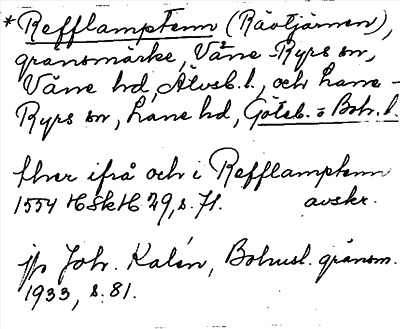 *Refflamptenn (Rävtjärnen),
gränsmärke, Väne-Ryrs sn,
Väne hd, Älvsb. l., och Lane-
Ryrs sn, Lane hd, Göteb. o Boh. l.
ther ifrå och i Refflamptenn
1554 HSkH 29, s. 71. avskr.
jfr Joh. Kalén, Bohusl. gränsm.
1933, s. 81.